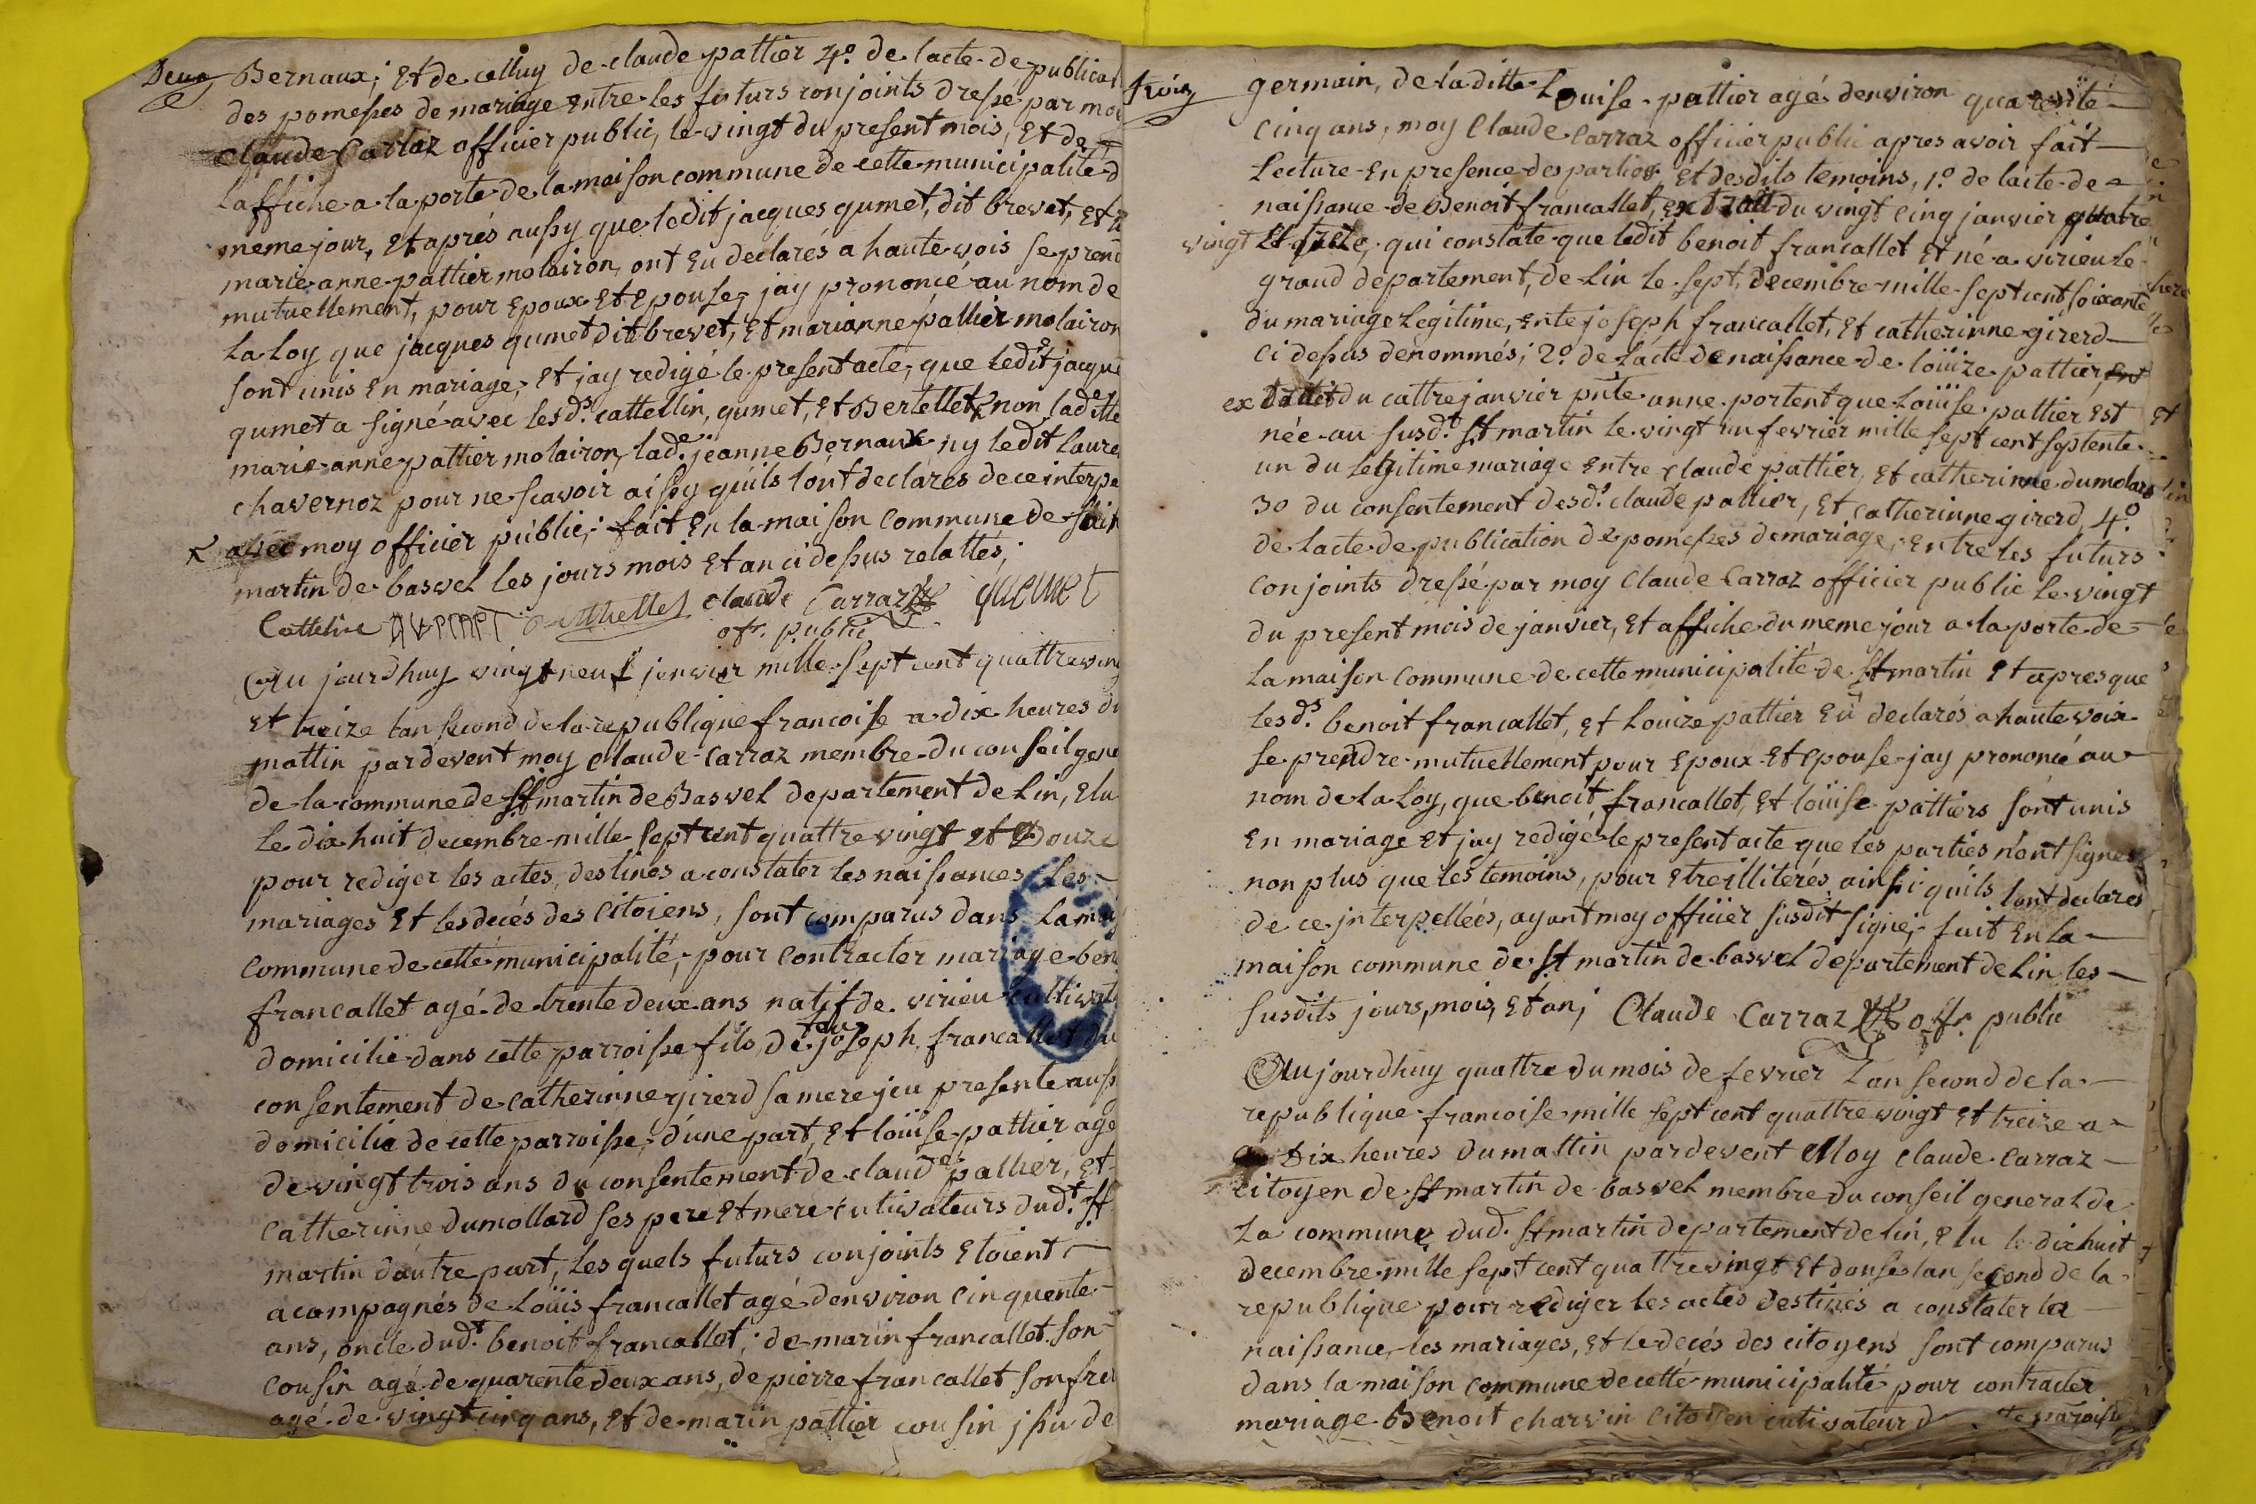 Deux
Bernaux; Et de celluy de claude pattier 4.o de lacte de publicat
des pomesses de mariage entre les futurs conjoints dressé par moy
claude Carraz officier public, le vingt du present mois, Et de
Laffiche a la porte de la maison commune de cette municipalité d
meme jour, Et aprés aussy que ledit jacques gumet, dit brevet, Et
marie anne pattier molairon, ont Eu declarés a haute vois se prend
mutuellement, pour Epoux Et Epouse, jay prononcé au nom de
La Loy que jacques gumet dit brevet, Et marianne pattier molairon
sont unis En mariage, Et jay redigé le present acte, que ledit jacque
gumet a signé avec les d.s cattellin, gumet, Et Bertellet non laditte
marie anne pattier molairon, lad.e jeanne Bernaux ny ledit laure
chavernoz pour ne scavoir aissy quils lont declarés de ce interpe
avec moy officier public; fait En la maison Commune de sain
martin de bavel les jours mois Et an ci dessus relattés;
Cattelin claude Carraz gumet
ofr. public
Au jourdhuy vingt neuf janvier mille sept cent quattre ving
Et treize lan second de la republique francoise a dix heures du
mattin pardevent moy Claude Carraz membre du conseil gene
de la commune de St martin de Bavel departement de Lin, Elu
Le dix huit decembre mille sept cent quattre vingt et Douze
pour rediger les actes, destinés a constater les naissances, Les
mariages Et les decés des Citoiens, sont comparus dans La mais
Commune de cette municipalité, pour Contracter mariage ben
francallet agé de trente deux ans natif de virieu Cultivat
domicilié dans cette parroisse fils, de feu joseph francallet du
consentement de Catherinne girerd sa mere jcu presente auss
domicilié de cette parroisse, d'une part, Et loüise pattier agé
de vingt trois ans du consentement de claude pattier, Et
Catherinne dumollard ses pere Et mere cutivateurs dud.t St
martin d'autre part, Les quels futurs conjoints Etoient
acompagnés de Loüis francallet agé denviron Cinquente
ans, oncle dud.t benoit francallet; de marin francallet son
Cousin agé de quarente deux ans, de pierre francallet son fre
agé de vingt cinq ans, Et de marin pattier cousin jssu de
trois
germain, de laditte Louise pattier agé denviron quarente
Cinq ans, moy Claude Carraz officier public apres avoir fait
Lecture En presence des parties Et desdits temoins, 1.o de lacte de
naissance de Benoit francallet, Extrait du vingt Cinq janvier quatre
vingt Et treze, qui constate que ledit benoit francallet Et né a virieu le
grand departement, de Lin le sept, decembre mille sept cent soixante
du mariage Legitime, Ente joseph francallet, Et catherinne girerd
Ci dessus denommés; 2.o de lácte de naissance de loüize pattier,
extrait du cattre janvier pnte anne portent que Loüise pattier Est
née au susd.t St martin le vingt un fevrier mille sept cent septente
un du Legitime mariage Entre Claude pattier, Et catherinne dumolard
3o du consentement desd.s claude pattier, Et Catherinne girerd, 4.o
de Lacte de publication de pomesses de mariage, Entre les futurs
Conjoints dressé par moy Claude Carraz officier public Le vingt
du present mois de janvier, Et affiche du meme jour a la porte de
La maison Commune de cette municipalité de St martin Et apres que
les d.s benoit francallet, Et Louize pattier Eu declarés a haute voix
se prendre mutuellement pour Epoux Et Epouse jay prononcé au
nom de La Loy, que benoit francallet, Et loüise pattiers sont unis
En mariage Et jay redigé le present acte que les parties n'ont signés
non plus que les temoins, pour Etre illiterés ainsi quils lont declares
de ce jnterpellées, ayant moy officiér susdit signé; fait En la
maison commune de St martin de bavel departement de Lin les
susdits jours, mois, Et an; Claude Carraz ofr. public
Aujourdhuy quattre du mois de fevrier Lan second de la
republique francoise mille sept cent quattre vingt Et treize a
Dix heures du mattin pardevent Moy Claude Carraz
citoyen de St martin de bavel membre du conseil general de
La commune dud. St martin departement de lin, Elu le dix huit
decembre mille sept cent quattre vingt Et douse lan second de la
republique pour rediger les actes destinés a constater la
naissance, les mariages, Et le decés des citoyens sont comparus
dans la maison Commune de cette municipalité pour contracter
mariage Benoit Charvin Citoyen cutivateur paroisse